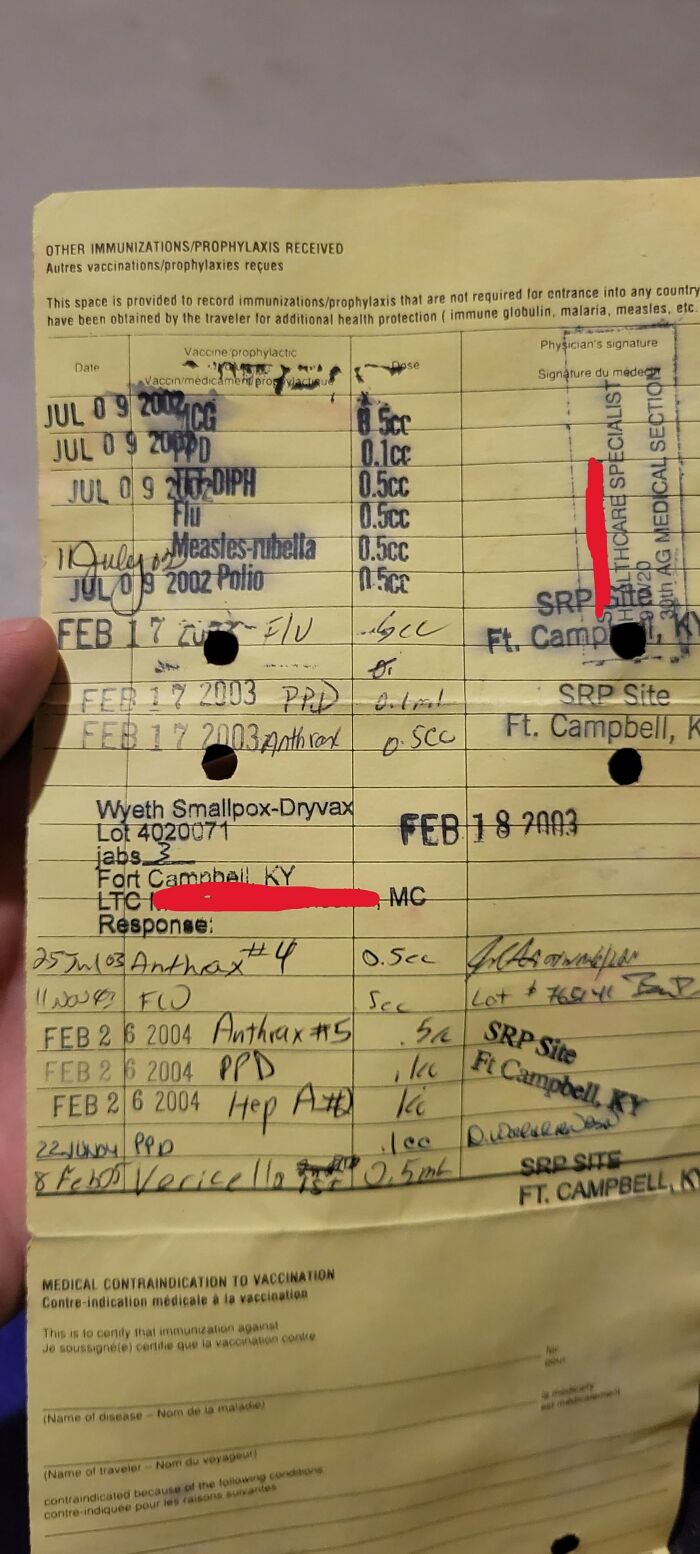 OTHER IMMUNIZATIONS/PROPHYLAXIS RECEIVED
Autres vaccinations/prophylaxies reçues
This space is provided to record immunizations/prophylaxis that are not required for entrance into any country
have been obtained by the traveler for additional health protection ( immune globulin, malaria, measles, etc.
Date Vaccine/prophylactic Dose Physician's signature
Vaccin/médicament/prophylactique Signature du médecin
HEALTHCARE SPECIALIST
30th AG MEDICAL SECTION
JUL 0 9 2002 0.5cc
JUL 0 9 2002 PPD 0.1cc
JUL 0 9 2002 TET-DIPH 0.5cc
Flu 0.5cc
11 July 02 Measles-rubella 0.5cc
JUL 0 9 2002 Polio 0.5cc
SRP Site
FEB 1 7 Ft. Campbell, KY
FEB 1 7 2003 PPD 0.1ml SRP Site
FEB 1 7 2003 Anthrax 0.5cc Ft. Campbell, K
Wyeth Smallpox-Dryvax FEB 1 8 2003
Lot 4020071
jabs 3
Fort Campbell, KY
LTC , MC
Response:
25 Jul 03 Anthrax #4 0.5cc
11 Nov 5cc Lot #
FEB 2 6 2004 Anthrax #5 SRP Site
FEB 2 6 2004 PPD .1cc Ft Campbell, KY
FEB 2 6 2004 Hep A
22 PPD .1cc
8 Feb 05 Vericella 1st 0.5ml SRP SITE
FT. CAMPBELL, KY
MEDICAL CONTRAINDICATION TO VACCINATION
Contre-indication médicale à la vaccination
This is to certify that immunization against
Je soussigné(e) certifie que la vaccination contre
for
pour
is medically
est médicalement
(Name of disease – Nom de la maladie)
(Name of traveler – Nom du voyageur)
contraindicated because of the following conditions
contre-indiquée pour les raisons suivantes